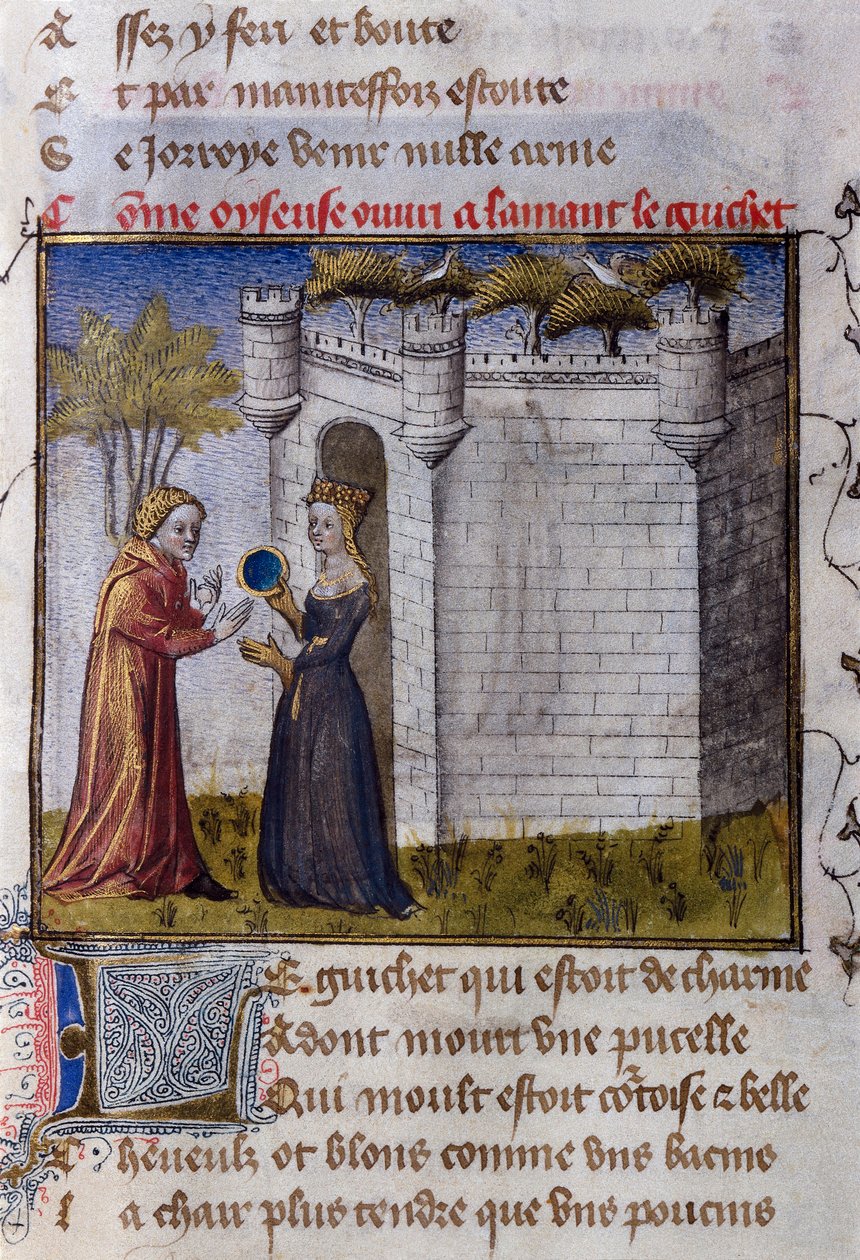 Assez y feri et boute
Et par maintesfoiz escoute
Se Jorroye venir nulle arme
Cõme oyseuse ouuri a lamant le guichet
LE guichet qui estoit de charme
Adont mouuri vne pucelle
Qui moult estoit cõrtoise & belle
Cheueulx ot blons comme vns bacins
La chair plus tendre que vns poucins